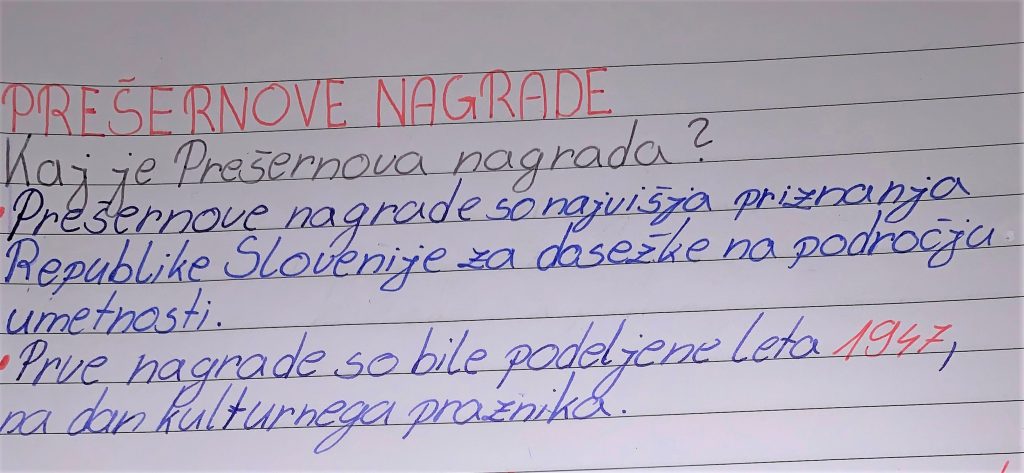 PREŠERNOVE NAGRADE
Kaj je Prešernova nagrada?
• Prešernove nagrade so najvišja priznanja
Republike Slovenije za dosežke na področju
umetnosti.
• Prve nagrade so bile podeljene leta 1947,
na dan kulturnega praznika.